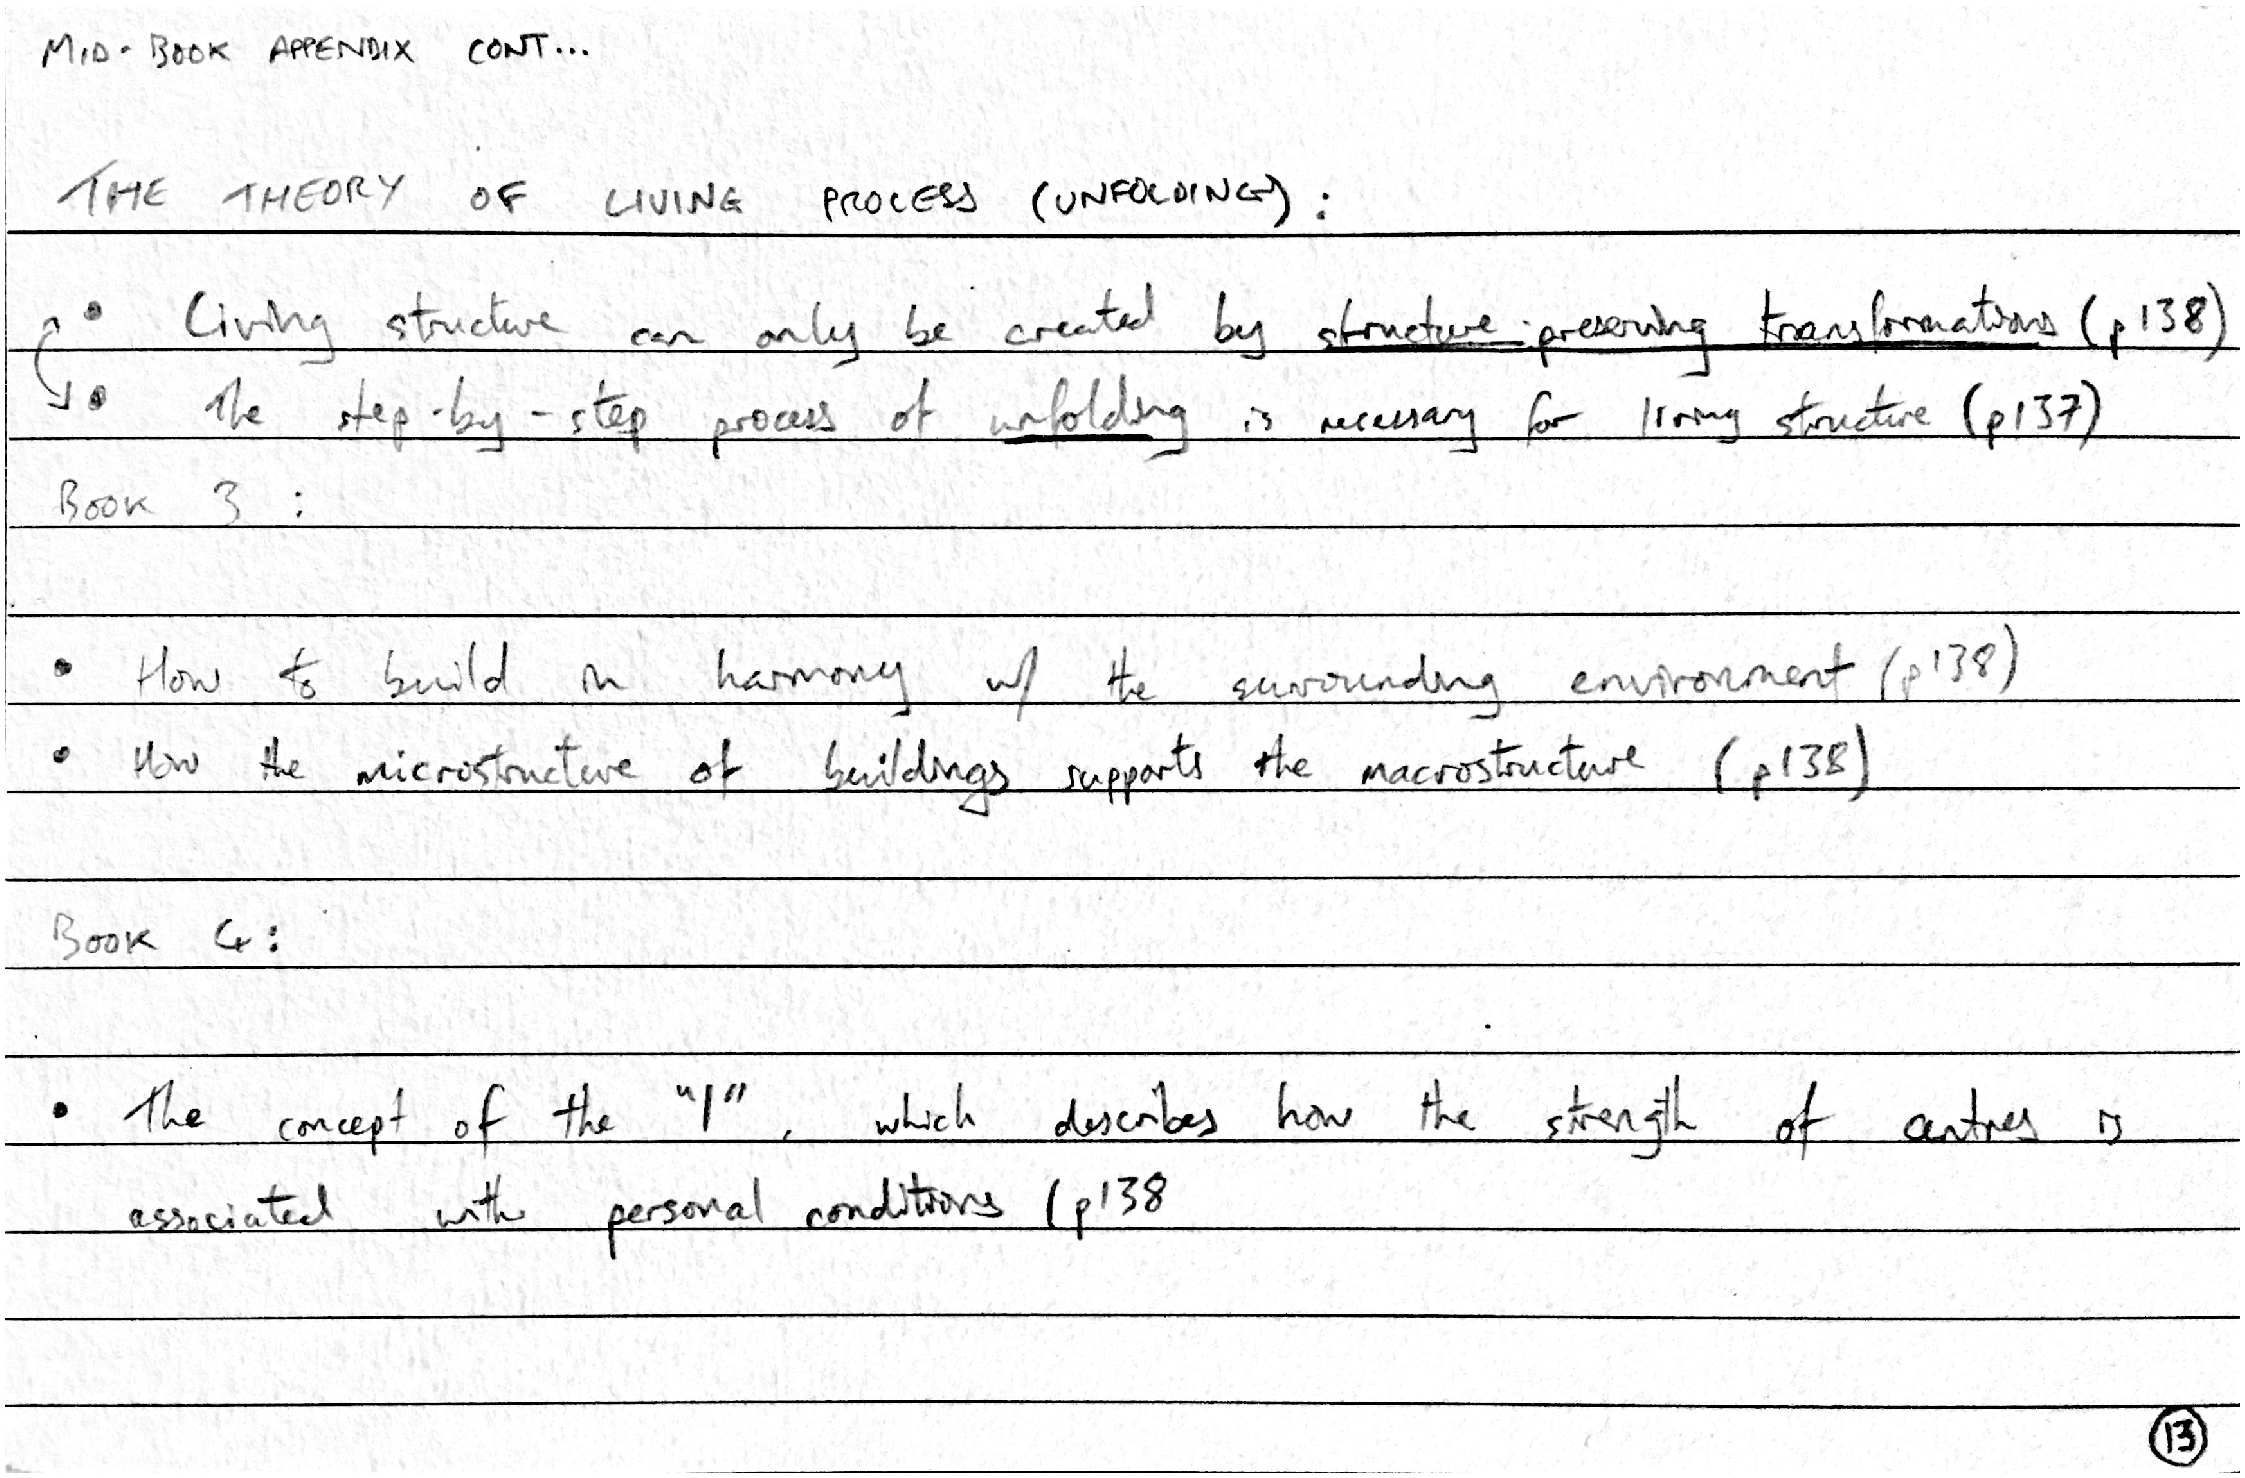 MID-BOOK APPENDIX CONT...
THE THEORY OF LIVING PROCESS (UNFOLDING):
• Living structure can only be created by structure-preserving transformations (p138)
• The step-by-step process of unfolding is necessary for living structure (p137)
BOOK 3:
• How to build in harmony w/ the surrounding environment (p138)
• How the microstructure of buildings supports the macrostructure (p138)
BOOK 4:
• The concept of the "I", which describes how the strength of centres is
associated with personal conditions (p138
13